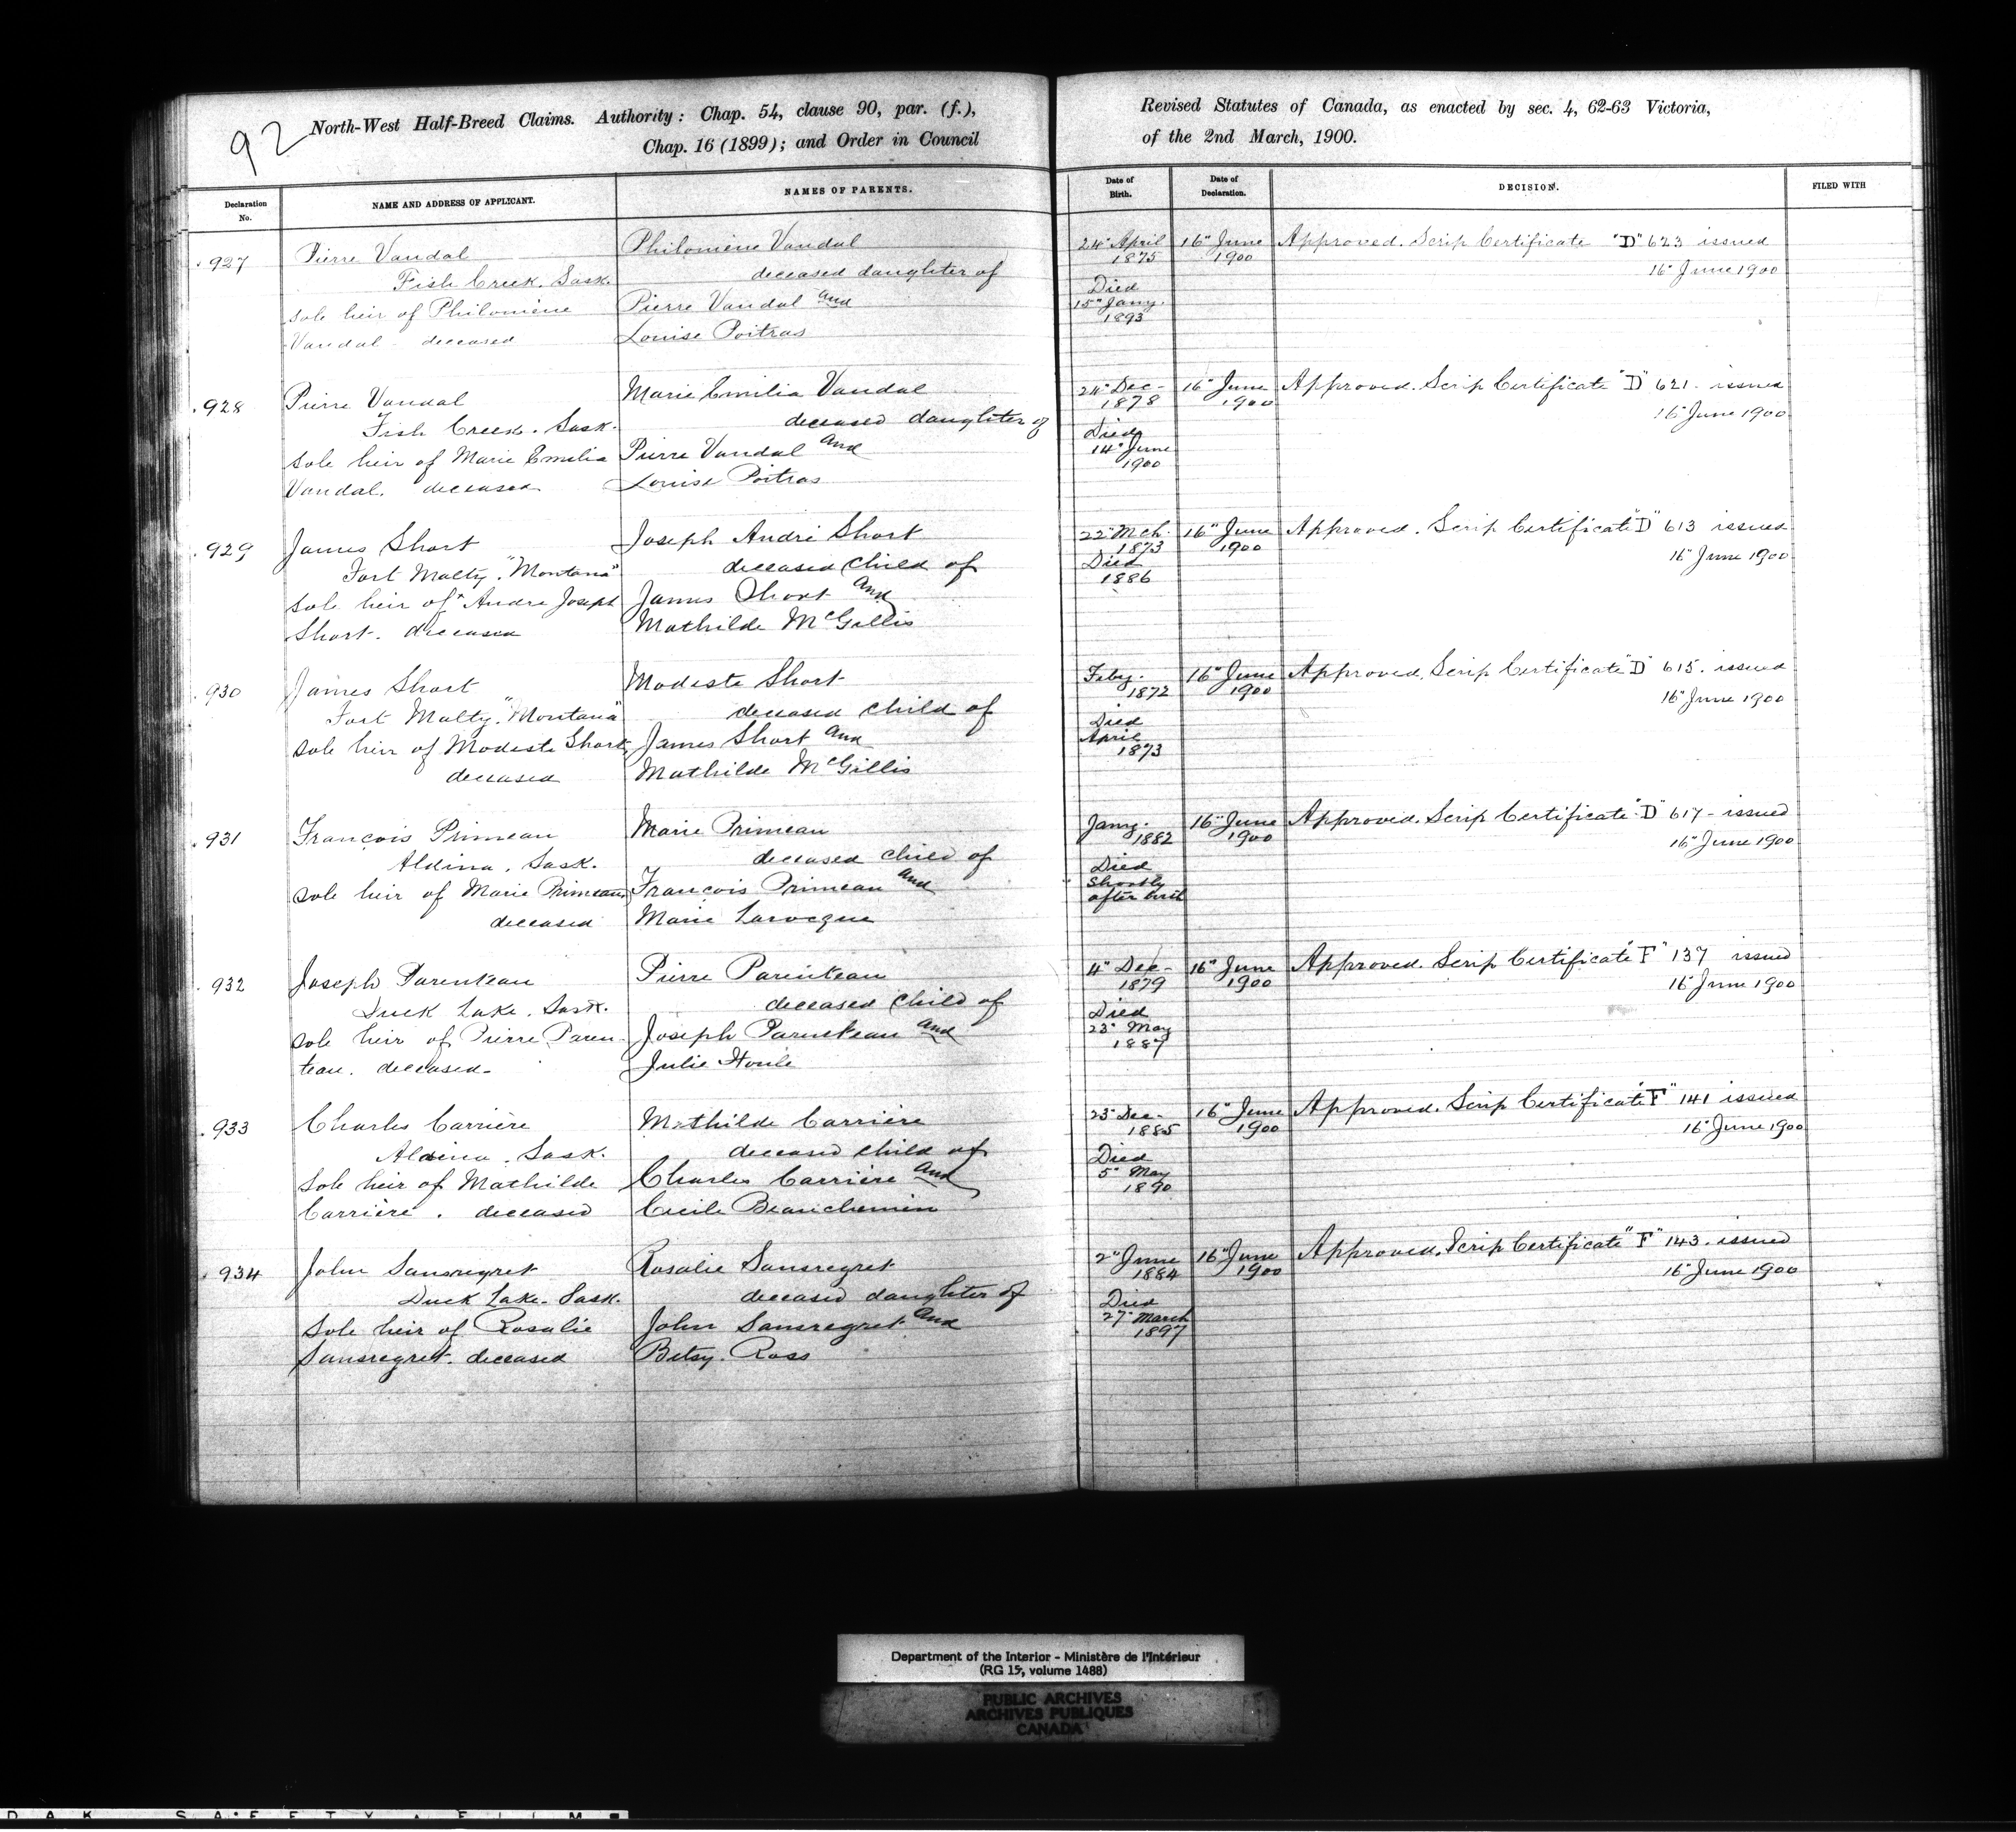 92
North-West Half-Breed Claims. Authority: Chap. 54, clause 90, par. (f.),
Chap. 16 (1899); and Order in Council
Revised Statutes of Canada, as enacted by sec. 4, 62-63 Victoria,
of the 2nd March, 1900.
Declaration No.
NAME AND ADDRESS OF APPLICANT.
NAMES OF PARENTS.
Date of Birth.
Date of Declaration.
DECISION.
FILED WITH
927
Pierre Vandal
Fish Creek. Sask.
sole heir of Philomène
Vandal deceased
Philomène Vandal
deceased daughter of
Pierre Vandal and
Louise Poitras
24" April
1875
Died
15" Jany.
1893
16" June
1900
Approved. Scrip Certificate "D" 623 issued
16" June 1900
928
Pierre Vandal
Fish Creek. Sask.
sole heir of Marie Emilia
Vandal. deceased
Marie Emilia Vandal
deceased daughter of
Pierre Vandal and
Louise Poitras
24" Dec-
1878
Died
14" June
1900
16" June
1900
Approved. Scrip Certificate "D" 621. issued
16" June 1900
929
James Short
Fort Malty. "Montana"
sole heir of Andre Joseph
Short. deceased
Joseph André Short
deceased child of
James Short and
Mathilde McGillis
22" Mch.
1873
Died
1886
16" June
1900
Approved. Scrip Certificate "D" 613 issued
16" June 1900
930
James Short
Fort Malty. "Montana"
sole heir of Modeste Short
deceased
Modeste Short
deceased child of
James Short and
Mathilde McGillis
Feby.
1872
Died
April
1873
16" June
1900
Approved. Scrip Certificate "D" 615. issued
16" June 1900
931
François Primeau
Aldina, Sask.
sole heir of Marie Primeau
deceased
Marie Primeau
deceased child of
François Primeau and
Marie Larocque
Jany.
1882
Died
Shortly
after birth
16" June
1900
Approved. Scrip Certificate "D" 617 - issued
16" June 1900
932
Joseph Parenteau
Duck Lake. Sask.
sole heir of Pierre Paren-
teau. deceased-
Pierre Parenteau
deceased child of
Joseph Parenteau and
Julie Houle
4" Dec-
1879
Died
23" May
1887
16" June
1900
Approved. Scrip Certificate "F" 137 issued
16" June 1900
933
Charles Carrière
Aldina. Sask.
Sole heir of Mathilde
Carrière. deceased
Mathilde Carrière
deceased child of
Charles Carrière and
Cecile Beauchemin
23" Dec-
1885
Died
5" May
1890
16" June
1900
Approved. Scrip Certificate "F" 141 issued
16" June 1900
934
John Sansregret
Duck Lake- Sask.
Sole heir of Rosalie
Sansregret. deceased
Rosalie Sansregret
deceased daughter of
John Sansregret and
Betsy. Ross
2" June
1884
Died
27" March
1897
16" June
1900
Approved. Scrip Certificate "F" 143. issued
16" June 1900
Department of the Interior - Ministère de l'Intérieur
(RG 15, volume 1488)
PUBLIC ARCHIVES
ARCHIVES PUBLIQUES
CANADA
D A K   S A F E T Y   F I L M